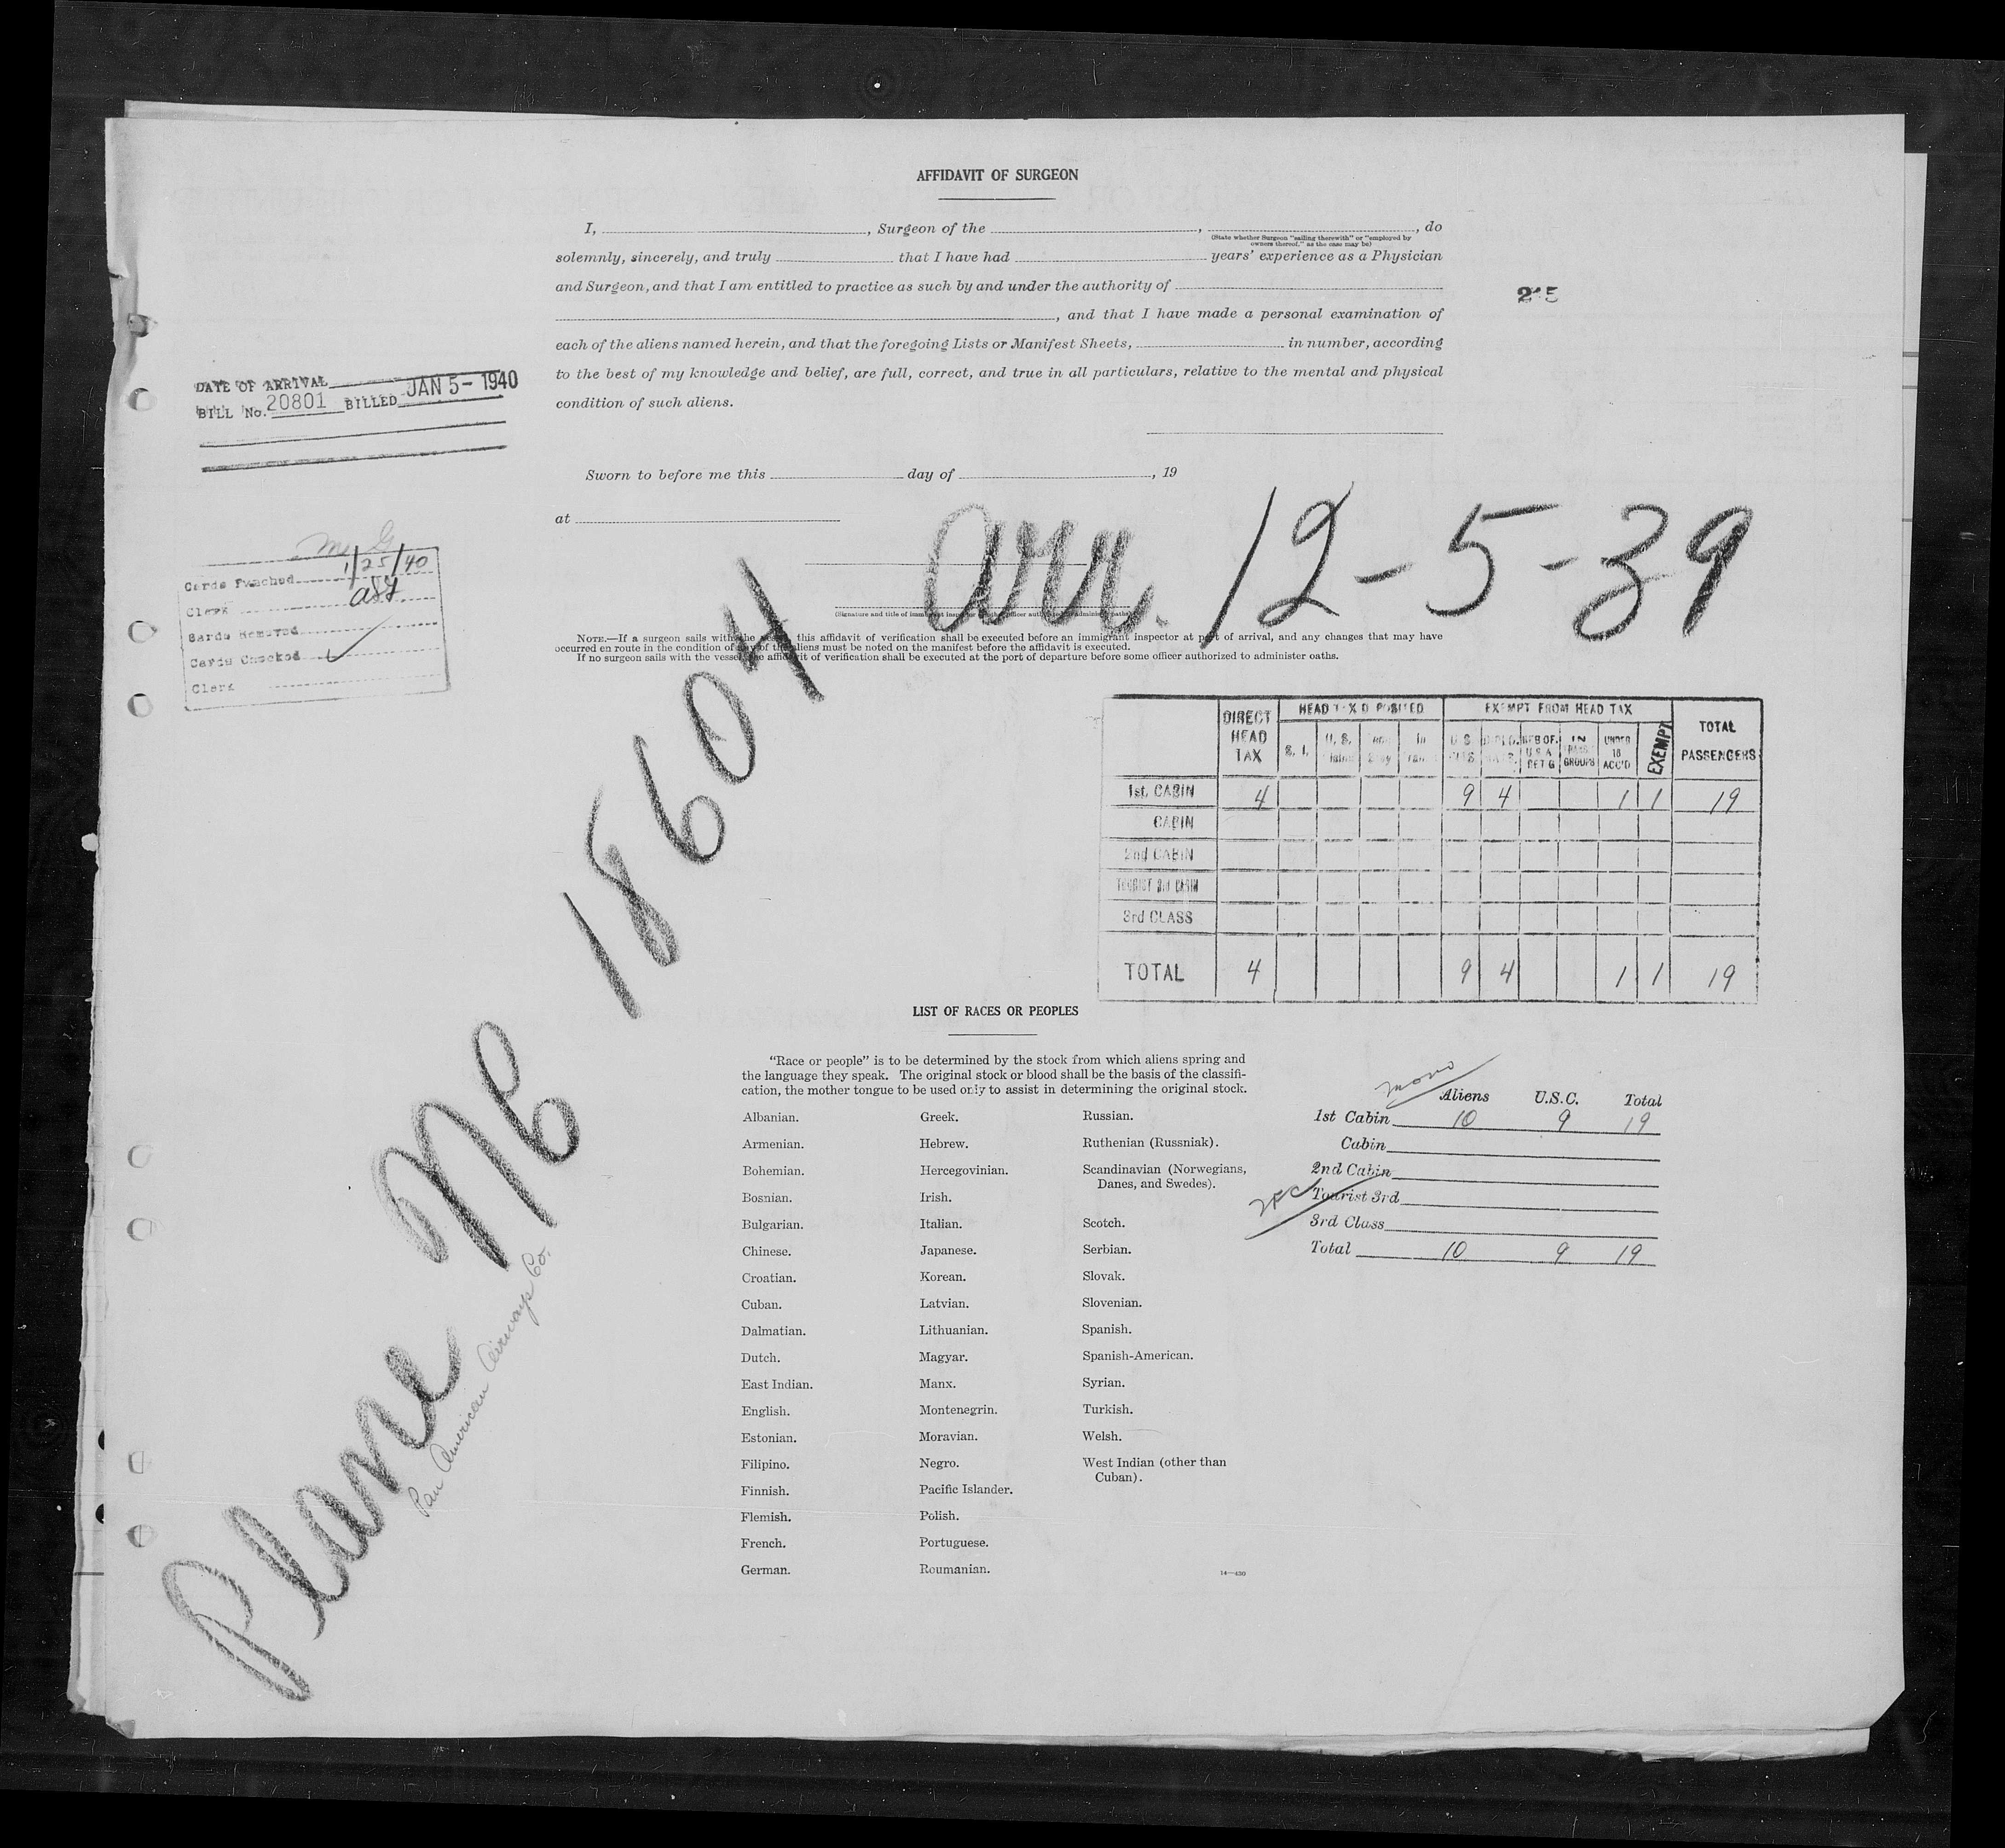 AFFIDAVIT OF SURGEON
I, , Surgeon of the , , do
(State whether Surgeon "sailing therewith" or "employed by
owners thereof," as the case may be)
solemnly, sincerely, and truly that I have had years' experience as a Physician
and Surgeon, and that I am entitled to practice as such by and under the authority of
, and that I have made a personal examination of
each of the aliens named herein, and that the foregoing Lists or Manifest Sheets, in number, according
to the best of my knowledge and belief, are full, correct, and true in all particulars, relative to the mental and physical
condition of such aliens.
DATE OF ARRIVAL
BILL No. 20801 BILLED JAN 5- 1940
Sworn to before me this day of , 19
at
arr. 12-5-39
Cards Punched 1/25/40
Clerk
Cards Removed
Cards Checked
Clerk
NOTE.—If a surgeon sails with the vessel, this affidavit of verification shall be executed before an immigrant inspector at port of arrival, and any changes that may have
occurred en route in the condition of any of the aliens must be noted on the manifest before the affidavit is executed.
If no surgeon sails with the vessel, the affidavit of verification shall be executed at the port of departure before some officer authorized to administer oaths.
Plane NC 18604
Pan American Airways Co.
DIRECT HEAD TAX HEAD TAX DEPOSITED EXEMPT FROM HEAD TAX TOTAL PASSENGERS
S. I. U. S. In U. S. IN TRANS. GROUPS UNDER 16 ACC'D EXEMPT
1st CABIN 4 9 4 1 1 19
CABIN
2nd CABIN
TOURIST 3rd CABIN
3rd CLASS
TOTAL 4 9 4 1 1 19
LIST OF RACES OR PEOPLES
"Race or people" is to be determined by the stock from which aliens spring and
the language they speak. The original stock or blood shall be the basis of the classifi-
cation, the mother tongue to be used only to assist in determining the original stock.
Albanian.
Armenian.
Bohemian.
Bosnian.
Bulgarian.
Chinese.
Croatian.
Cuban.
Dalmatian.
Dutch.
East Indian.
English.
Estonian.
Filipino.
Finnish.
Flemish.
French.
German.
Greek.
Hebrew.
Hercegovinian.
Irish.
Italian.
Japanese.
Korean.
Latvian.
Lithuanian.
Magyar.
Manx.
Montenegrin.
Moravian.
Negro.
Pacific Islander.
Polish.
Portuguese.
Roumanian.
Russian.
Ruthenian (Russniak).
Scandinavian (Norwegians,
Danes, and Swedes).
Scotch.
Serbian.
Slovak.
Slovenian.
Spanish.
Spanish-American.
Syrian.
Turkish.
Welsh.
West Indian (other than
Cuban).
14—430
Aliens U.S.C. Total
1st Cabin 10 9 19
Cabin
2nd Cabin
Tourist 3rd
3rd Class
Total 10 9 19